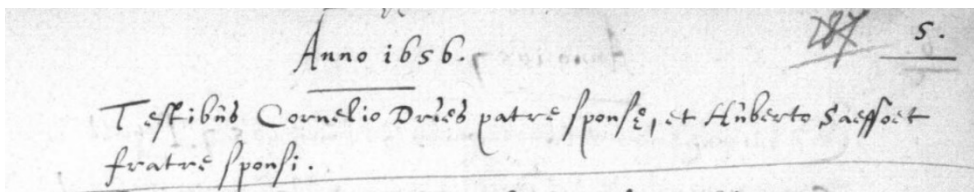 287 5.
Anno 1656.
Testibus Cornelio Dries patre sponsę, et Huberto Saeffoet
fratre sponsi.